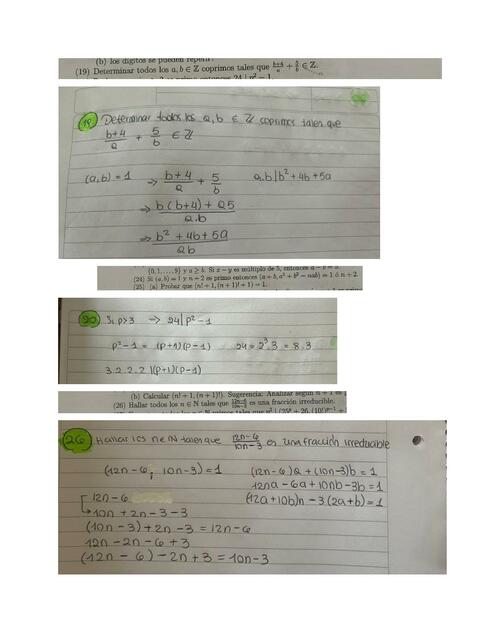 (b) los dígitos se pueden repetir?
(19) Determinar todos los a, b ∈ Z coprimos tales que (b+4)/a + 5/b ∈ Z.
entonces 24 | n² − 1.
19 Determinar todos los a, b ∈ Z coprimos tales que
(b+4)/a + 5/b ∈ Z
(a,b) = 1 → (b+4)/a + 5/b a.b | b² + 4b + 5a
→ (b(b+4) + a5)/(a.b)
→ (b² + 4b + 5a)/(ab)
{0, 1, . . . , 9} y a ≥ b. Si x − y es múltiplo de 5, entonces a − b = 5.
(24) Si (a, b) = 1 y n + 2 es primo entonces (a + b, a² + b² − nab) = 1 ó n + 2.
(25) (a) Probar que (n! + 1, (n + 1)! + 1) = 1.
20 Si p>3 → 24 | p² − 1
p² − 1 = (p+1)(p−1) 24 = 2³.3 = 8.3
3.2.2.2 | (p+1)(p−1)
(b) Calcular (n! + 1, (n + 1)!). Sugerencia: Analizar según n + 1 es
(26) Hallar todos los n ∈ N tales que (12n−6)/(10n−3) es una fracción irreducible.
26 Hallar los n ∈ N tal que (12n−6)/(10n−3) es una fracción irreducible
(12n−6; 10n−3) = 1 (12n−6)a + (10n−3)b = 1
12na − 6a + 10nb − 3b = 1
12n−6 (12a + 10b)n − 3(2a + b) = 1
↳ 10n + 2n − 3 − 3
(10n − 3) + 2n − 3 = 12n − 6
12n − 2n − 6 + 3
(12n − 6) − 2n + 3 = 10n − 3